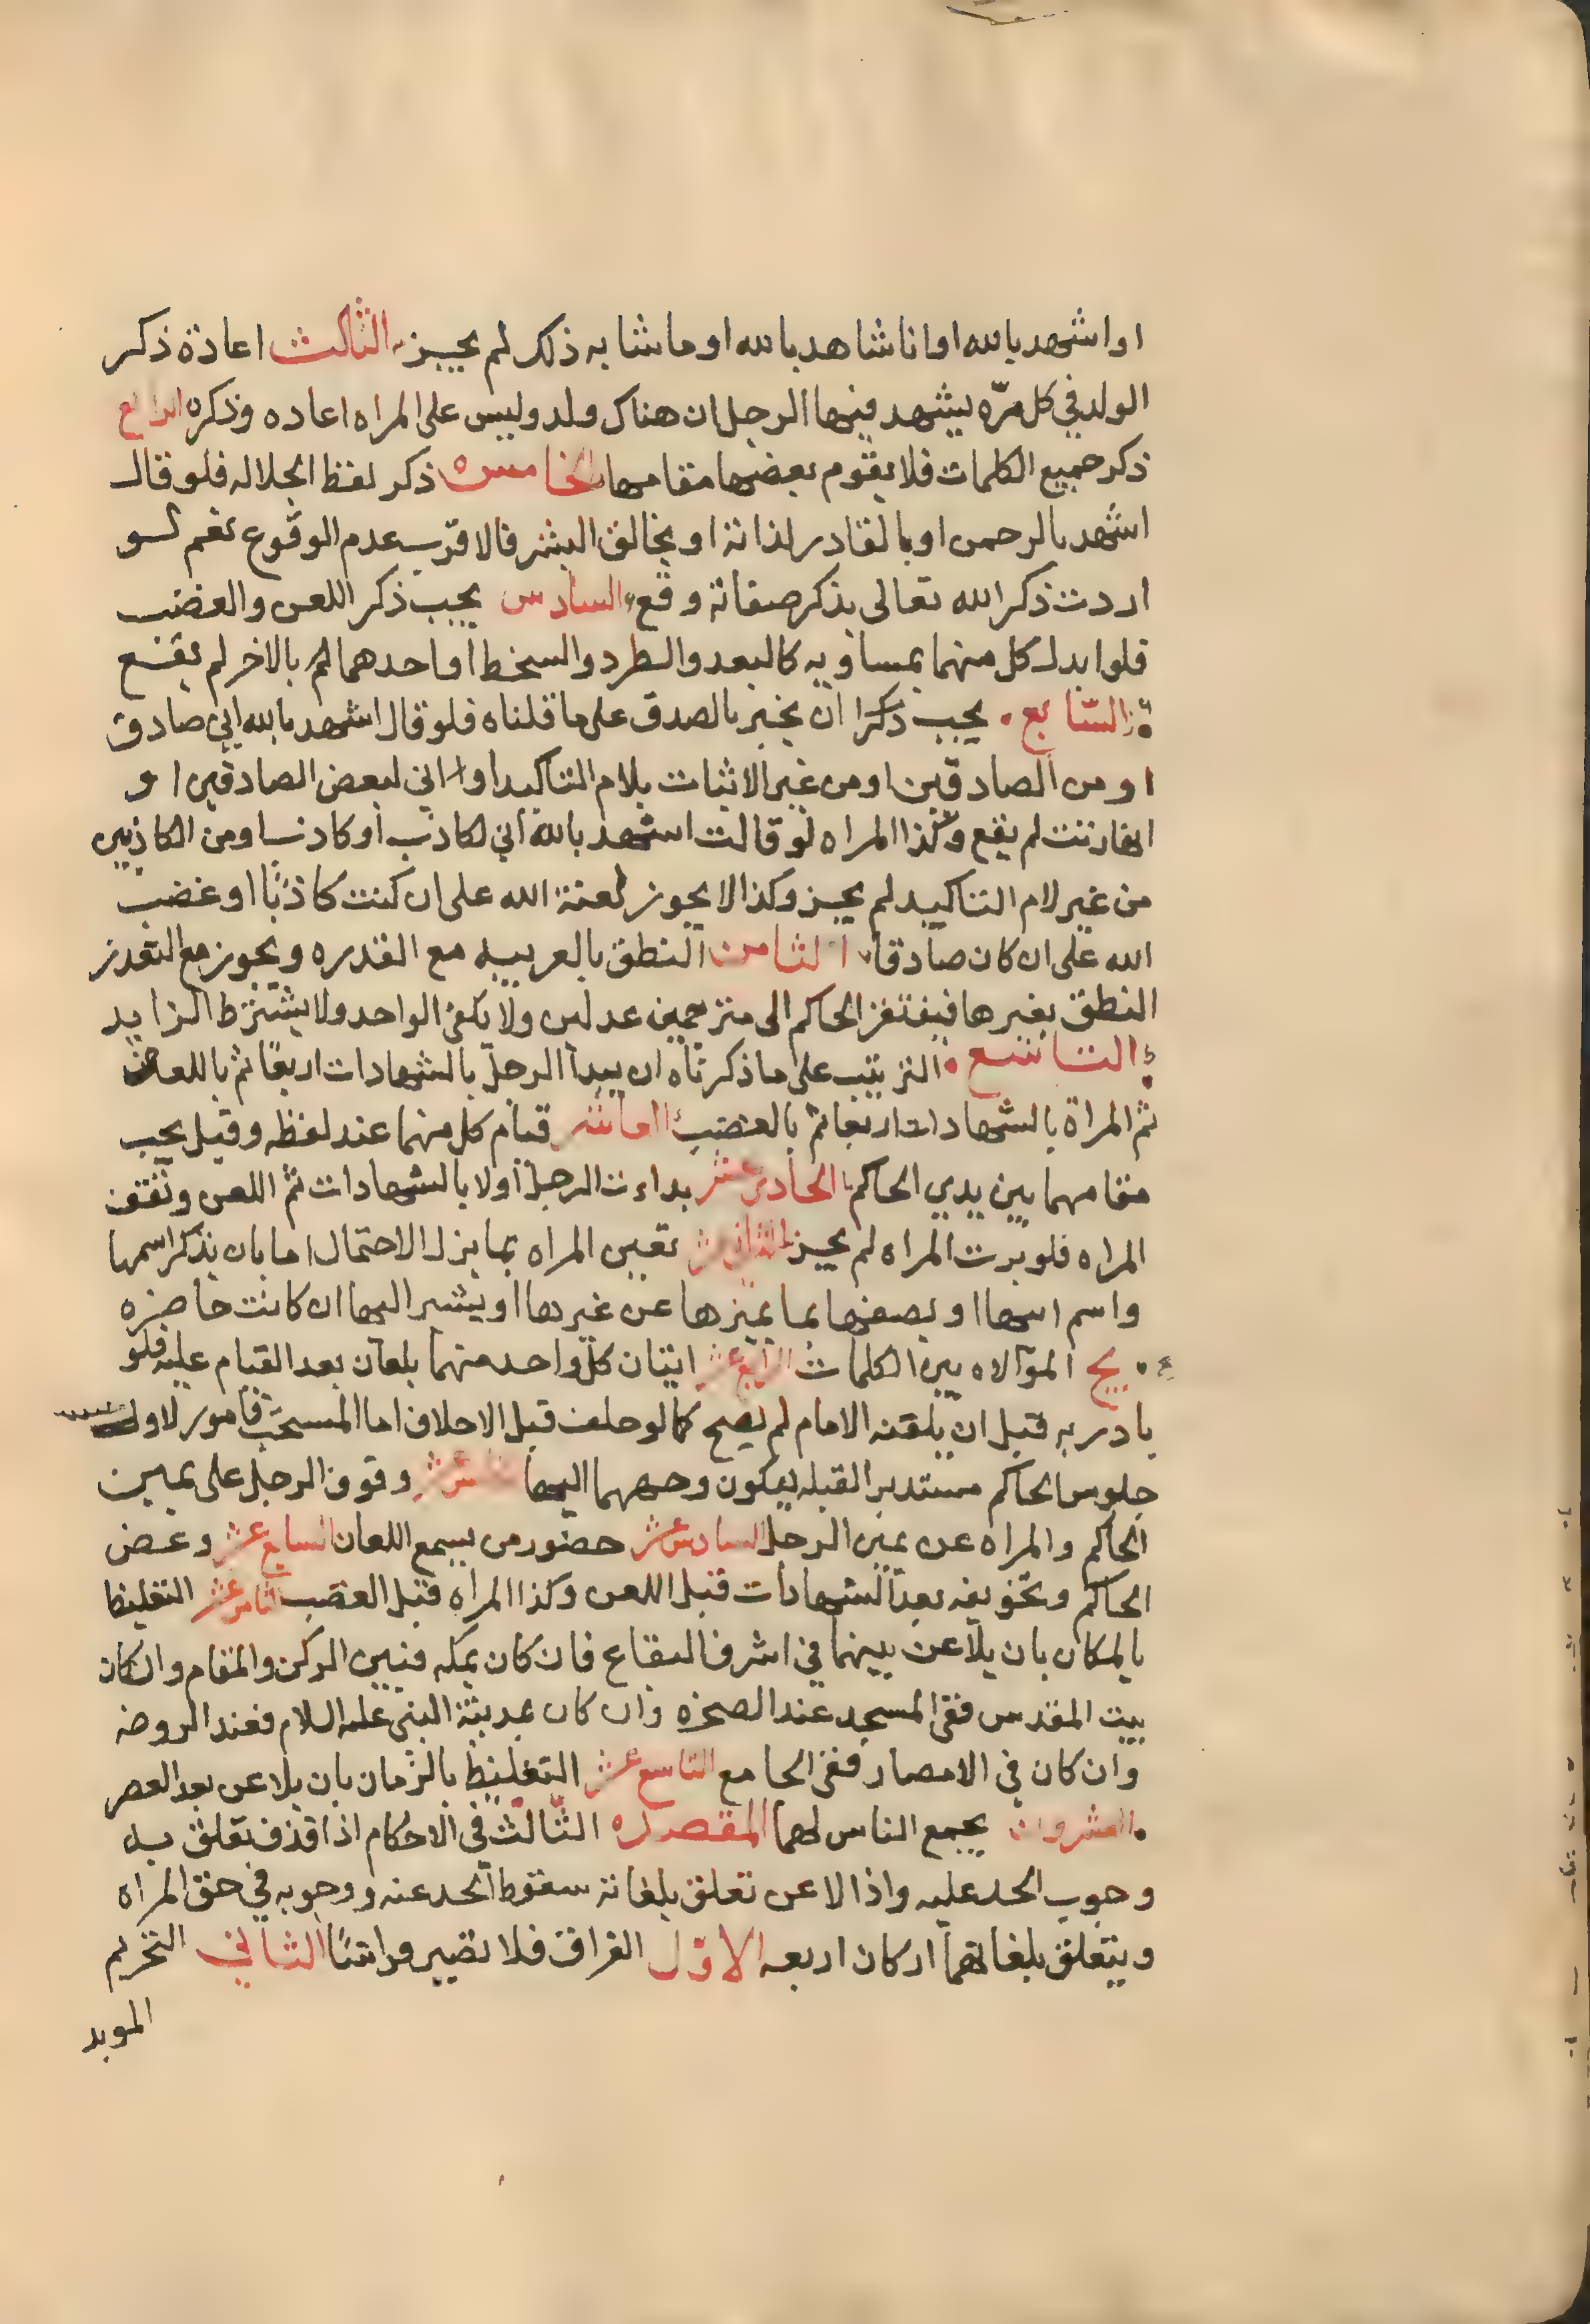 او اشهد بالله او انا شاهد بالله او ما شابه ذلك لم يجز الثالث اعادة ذكر
الولد في كل مرّه يشهد فيها الرجل ان هناك ولد وليس على المراه اعاده وذكره الرابع
ذكر جميع الكلمات فلا يقوم بعضها مقامها الخامسه ذكر لفظ الجلاله فلو قال
اشهد بالرحمن او بالقادر لذاته او بخالق البشر فالاقرب عدم الوقوع نعم لو
اردت ذكر الله تعالى بذكر صفاته وقع السادس يجب ذكر اللعن والغضب
فلو ابدل كل منهما بمساويه كالبعد والطرد والسخط او احدهما بالاخر لم يقع
السّابع يجب ذكرا ان يخبر بالصدق على ما قلناه فلو قال اشهد بالله اني صادق
او من الصادقين او من غير الاثبات بلام التاكيد او اني لبعض الصادقين او
انها زنت لم يقع وكذا المراه لو قالت اشهد بالله اني لكاذب او كاذب او من الكاذبين
من غير لام التاكيد لم يجز وكذا لا يجوز لعنة الله على ان كنت كاذبًا او غضب
الله على ان كان صادقا الثامن النطق بالعربيه مع القدره ويجوز مع التعذر
النطق بغيرها فيفتقر الحاكم الى مترجمين عدلين ولا يكفي الواحد ولا يشترط الزايد
التاسع الترتيب على ما ذكرناه ان يبدا الرجل بالشهادات اربعًا ثم باللعان
ثم المراة بالشهادات اربعا ثم بالغضب العاشر قيام كل منهما عند لفظه وقيل يجب
مقامهما بين يدي الحاكم الحادي عشر بداءت الرجل اولا بالشهادات ثم اللعن وتقف
المراه فلو بدت المراه لم يجز الثاني عشر تعين المراه بما يزل الاحتمال اما بان يذكر اسمها
واسم ابيها او يصفها بما يميزها عن غيرها او يشير اليها ان كانت حاضره
يج الموالاه بين الكلمات الرابع عشر اتيان كل واحد منهما بلعان بعد القيام عليه فلو
بادر به قبل ان يلقنه الامام لم يصح كما لو حلف قبل الاحلاف اما المستحب فامور الاول
جلوس الحاكم مستدبر القبله ليكون وجههما اليها عشر وقوف الرجل على يمين
الحاكم والمراه عن يمين الرجل السادس عشر حضور من يسمع اللعان السابع عشر وعض
الحاكم وتخويفه بعد الشهادات قبل اللعن وكذا المراه قبل الغضب الثامن عشر التغليظ
بالمكان بان يلاعن بينهما في اشرف البقاع فان كان بمكه فبين الركن والمقام وان كان
بيت المقدس ففي المسجد عند الصخره وان كان بمدينة النبي عليه السلام فعند الروضه
وان كان في الامصار ففي الجامع التاسع عشر التغليظ بالزمان بان يلاعن بعد العصر
العشرون يجمع الناس لهما المقصد الثّالث في الاحكام اذا قذف تعلق به
وجوب الحد عليه واذا لاعن تعلق بلعانه سقوط الحد عنه ووجوبه في حق المراه
ويتعلق بلعانهما اركان اربعه الاوّل الفراق فلا تصير فراشًا الثاني التحريم
الموبد